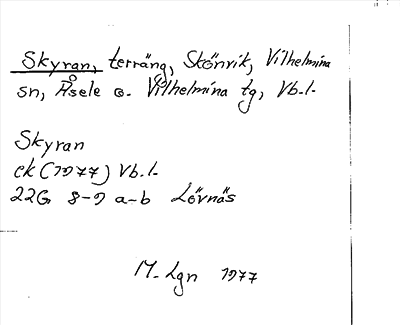 Skyran, terräng, Skönvik, Vilhelmina
sn, Åsele o. Vilhelmina tg, Vb.l.
Skyran
ek (1977) Vb.l.
22G 8-9 a-b Lövnäs
M. Lgn 1977